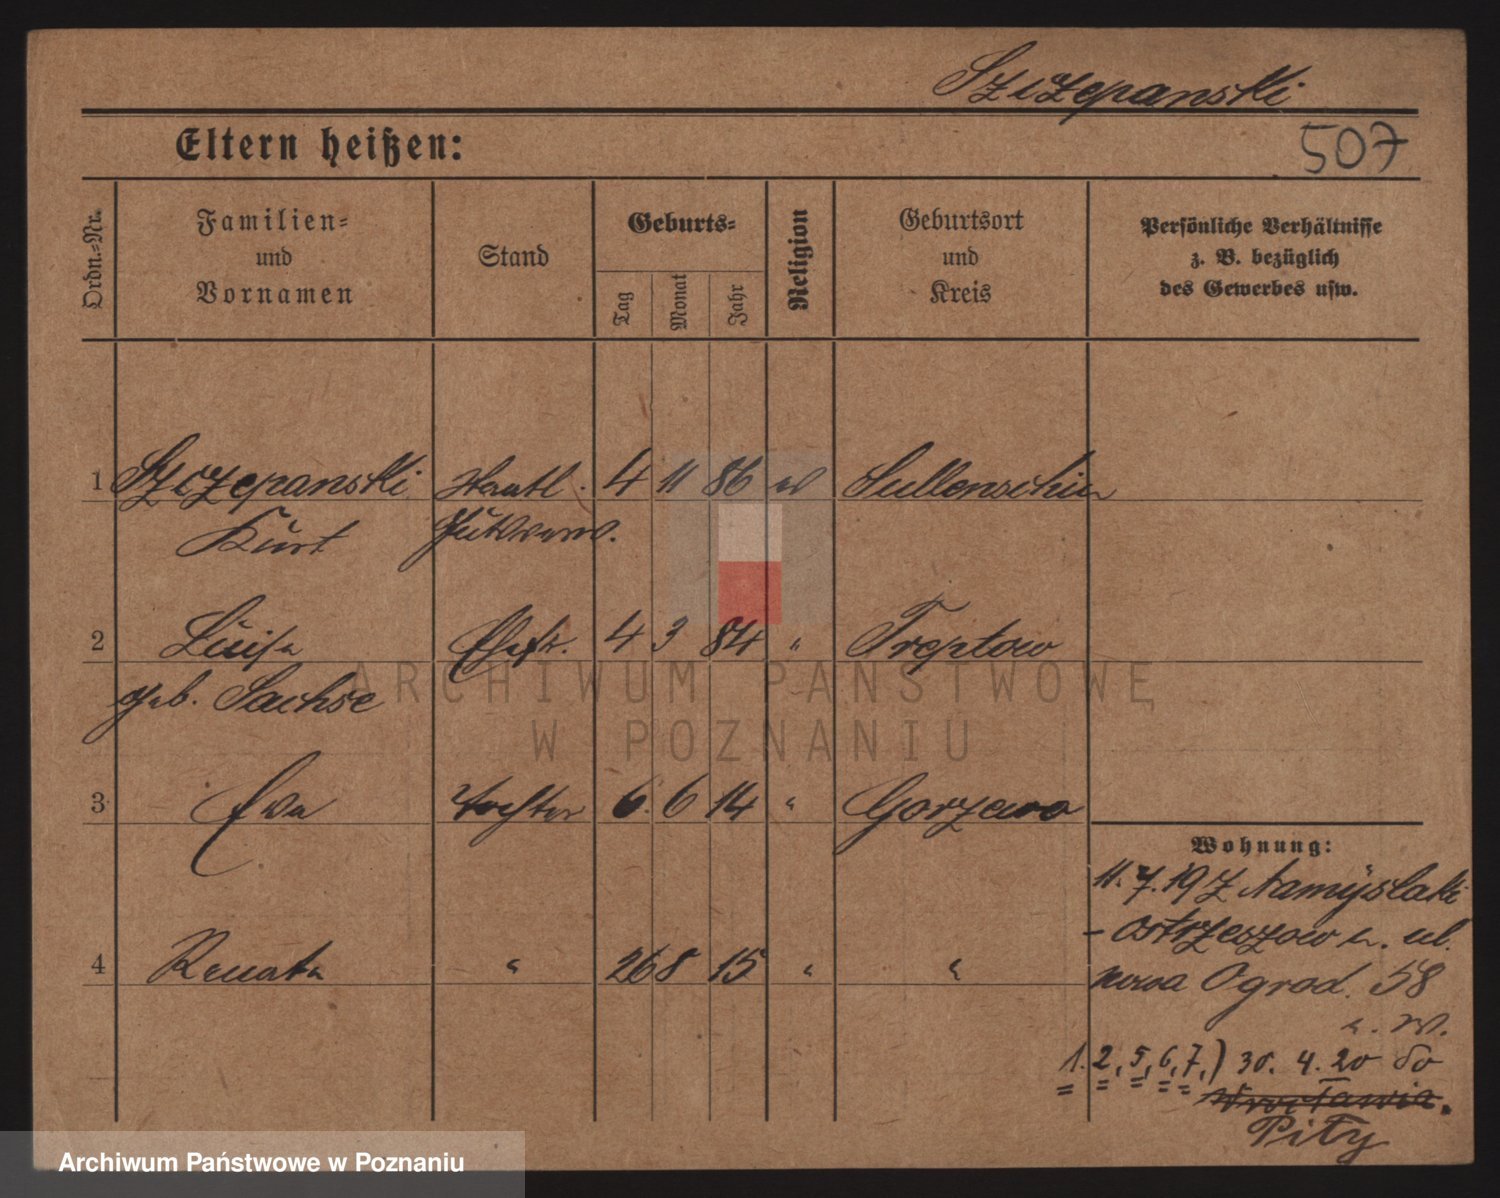 Szczepanski
507
Eltern heißen:
Ordn.-Nr.
Familien-
und
Vornamen
Stand
Geburts-
Tag
Monat
Jahr
Religion
Geburtsort
und
Kreis
Persönliche Verhältnisse
z. B. bezüglich
des Gewerbes usw.
1 Szczepanski 4 11 86 ev Sullenschin
Kurt
2 Luise Ehefr. 4 3 84 " Treptow
geb. Sachse
3 Eva Tochter 6. 6 14 " Gorzewo
Wohnung:
11. 7. 19 z Namyslaki
- Ostrzeszow ul.
4 Renate " 26 8 15 " "
nowa Ogrod. 58
1. 2, 5, 6, 7,) 30. 4. 20 do
Wrocławia.
Piły
ARCHIWUM PAŃSTWOWE
W POZNANIU
Archiwum Państwowe w Poznaniu